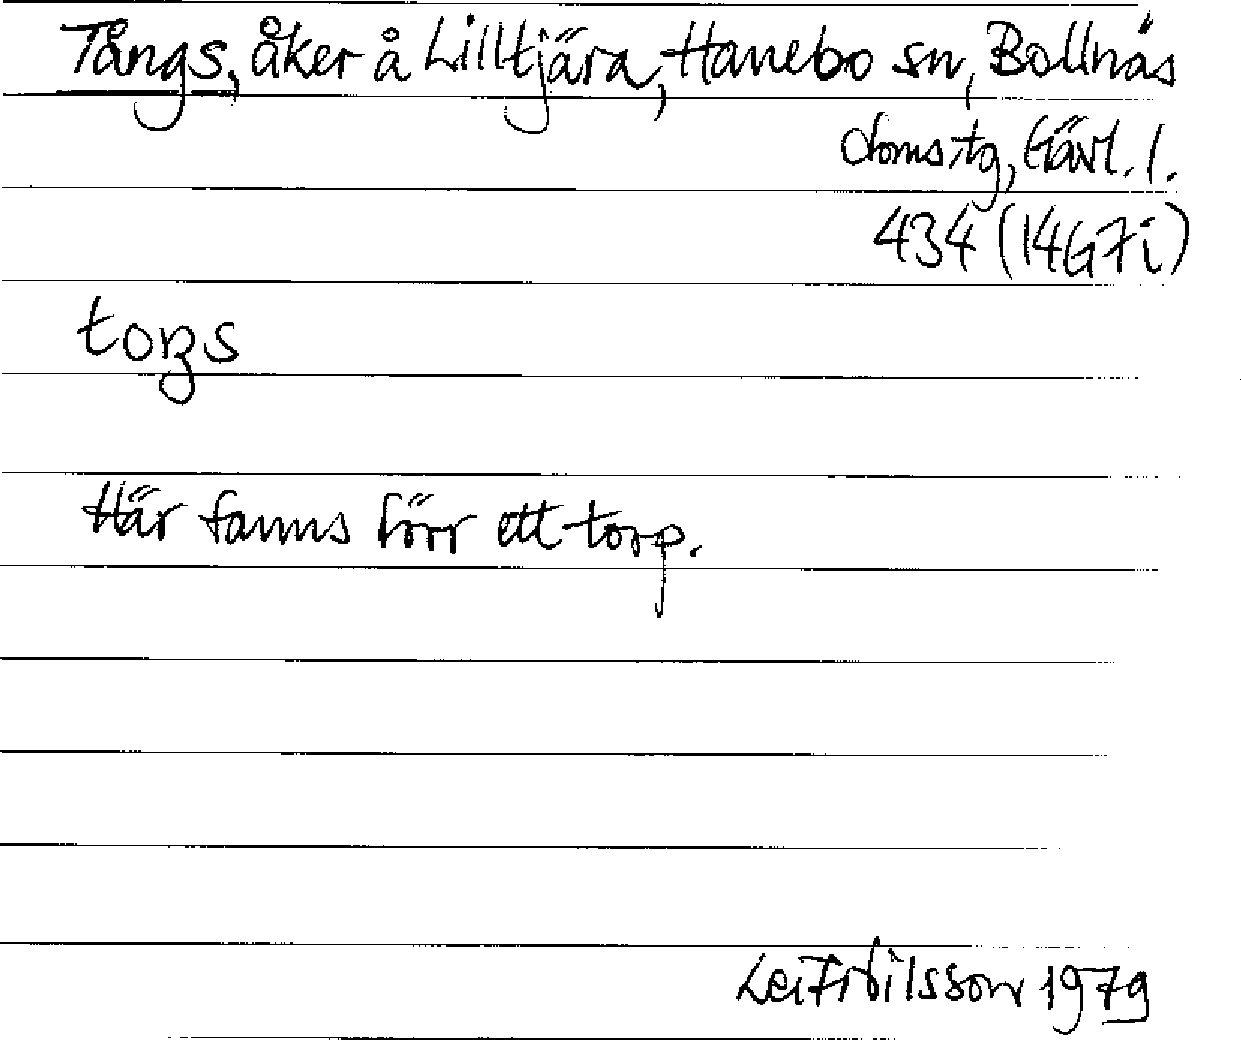 Tångs, åker å Lilltjära, Hanebo sn, Bollnäs
doms.tg, Gävl. l.
434 (14G7i)
toŋs
Här fanns förr ett torp.
Leif Nilsson 1979